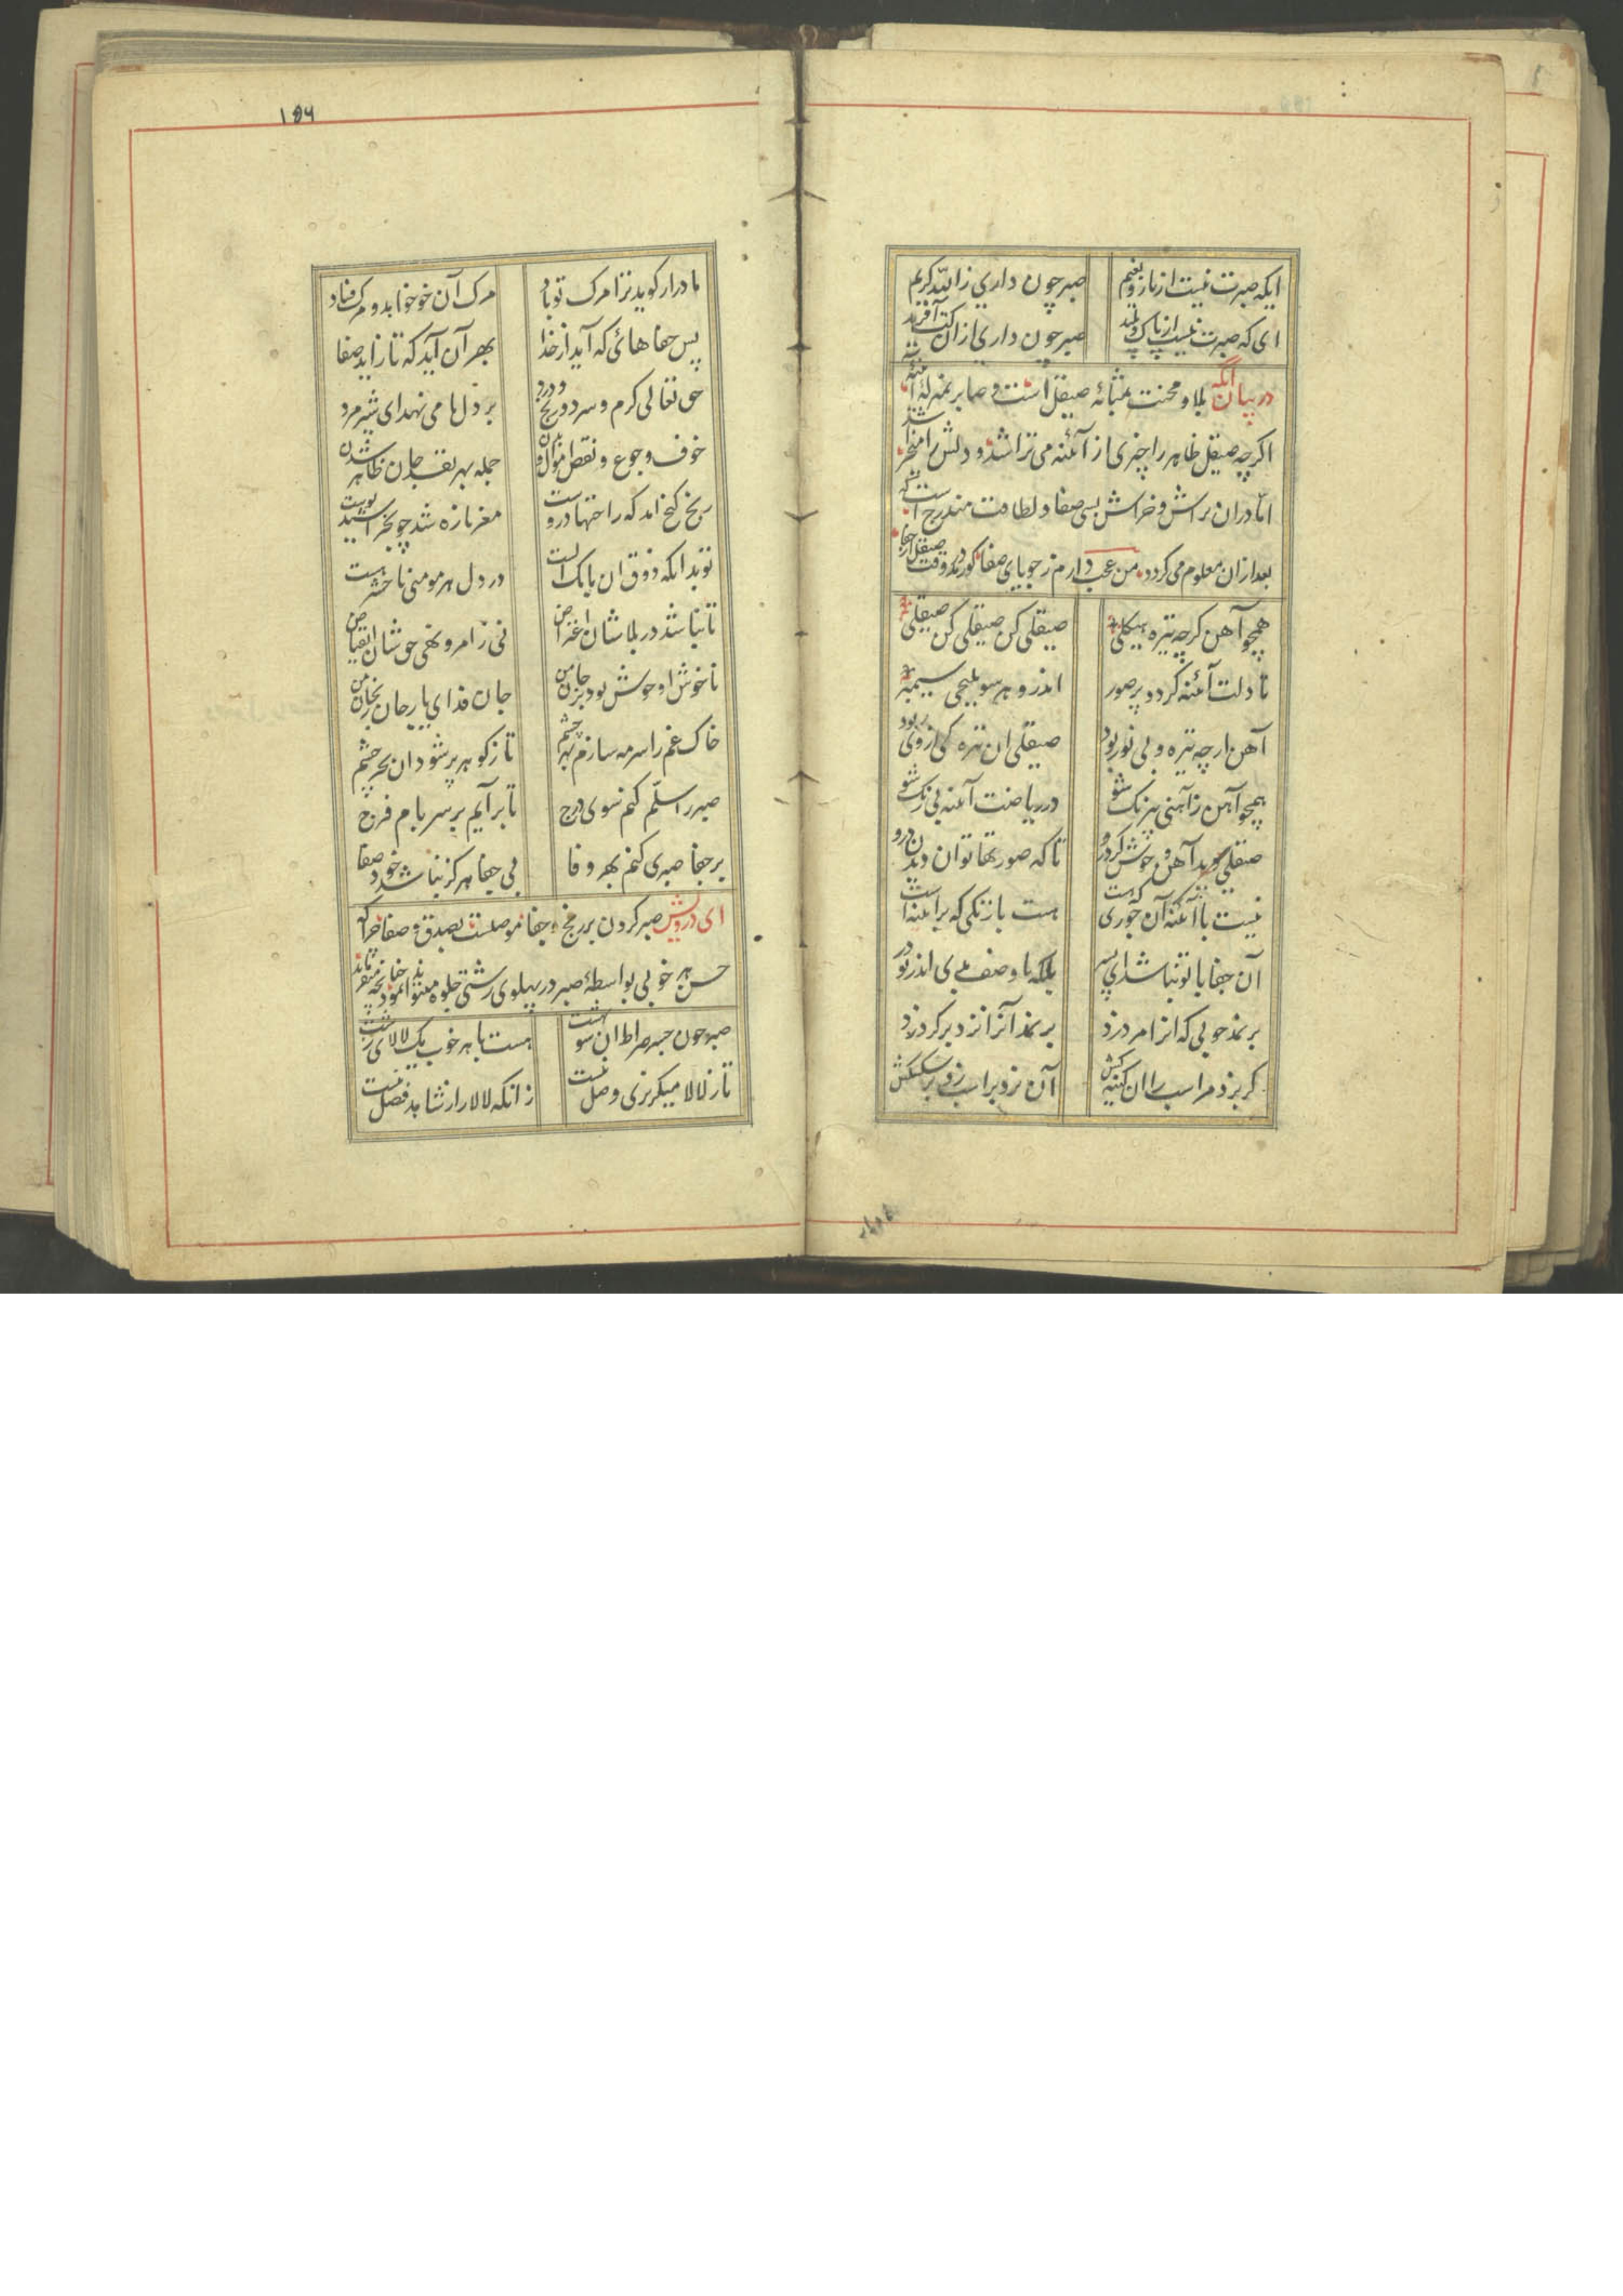 ایکه صبرت نیست از ناز و نعیم صبر چون داری ز الله کریم
ای که صبرت نیست از پاک و پلید صبر چون داری ازان کت آفرید
در بیان انکه بلا و محنت بمثابهٔ صیقل است و صابر بمنزلهٔ آئنه
اکرچه صیقل ظاهر را چیزی از آئنه می تراشد و دلش را
امّا دران تراش و خراش بسی صفا و لطافت مندرج است که
بعد ازان معلوم می کردد من عجب دارم ز جویای صفا کو رمد در وقت صیقل از جفا
همچو آهن کرچه تیره هیکلی صیقلی کن صیقلی کن صیقلی
تا دلت آئنه کردد پر صور اندرو هر سو ملیحی سیمبر
آهن ارچه تیره و بی نور بود صیقلی ان تیره کی از وی ربود
همچو آهن ز آهنی بیرنک شو در ریاضت آئنه بی زنک شو
صیقلی دید آهن و خوش کرد رو تا که صورتها توان دیدن درو
نیست با آئنه آن جوری که هست هست با زنکی که بر آئنه است
آن جفا با تو نباشد ای پسر بلکه با وصف بدی اندر تو در
بر نمد چوبی که انرا مرد زد بر نمد آنرا نزد بر کرد زد
کر بزد مر اسب را ان کینه کش آن نزد بر اسب زد بر سکسکش
۱۵۶
مادر ار کوید ترا مرک تو باد مرک آن خو خواهد و مرک فساد
پس جفاهائ که آید از خدا بهر آن آید که تا زاید صفا
حق تعالی کرم و سرد و رنج و درد بر دل ما می نهد ای شیر مرد
خوف و جوع و نقص اموال و بدن جمله بهر نقد جان ظاهر شدن
رنج کنج امد که راحتها دروست مغز تازه شد چو بخراشید پوست
در دل هر مومنی ناخشهست
تا نباشد در بلا شان اعتراض نی ز امر و نهی حق شان انقباض
ناخوش او خوش بود بر جان من جان فدای یار جان رنجان من
خاک غم را سرمه سازم بهر چشم تا ز کوهر پر شود ان بحر چشم
صبر را سلّم کنم سوی درج تا بر آیم بر سر بام فرج
بر جفا صبری کنم بهر وفا بی جفا هرکز نباشد خود صفا
ای درویش صبر کردن بر رنج و جفا موصلست بصدق و صفا چرا که
حسن هر خوبی بواسطهٔ صبر در پهلوی زشتی جلوه میتواند نمود چنانچه میفرماید
صبر چون جسر صراط ان سو بهشت هست با هر خوب یک لالای زشت
تا ز لالا میکریزی وصل نیست زانکه لالا را ز شاهد فصل نیست